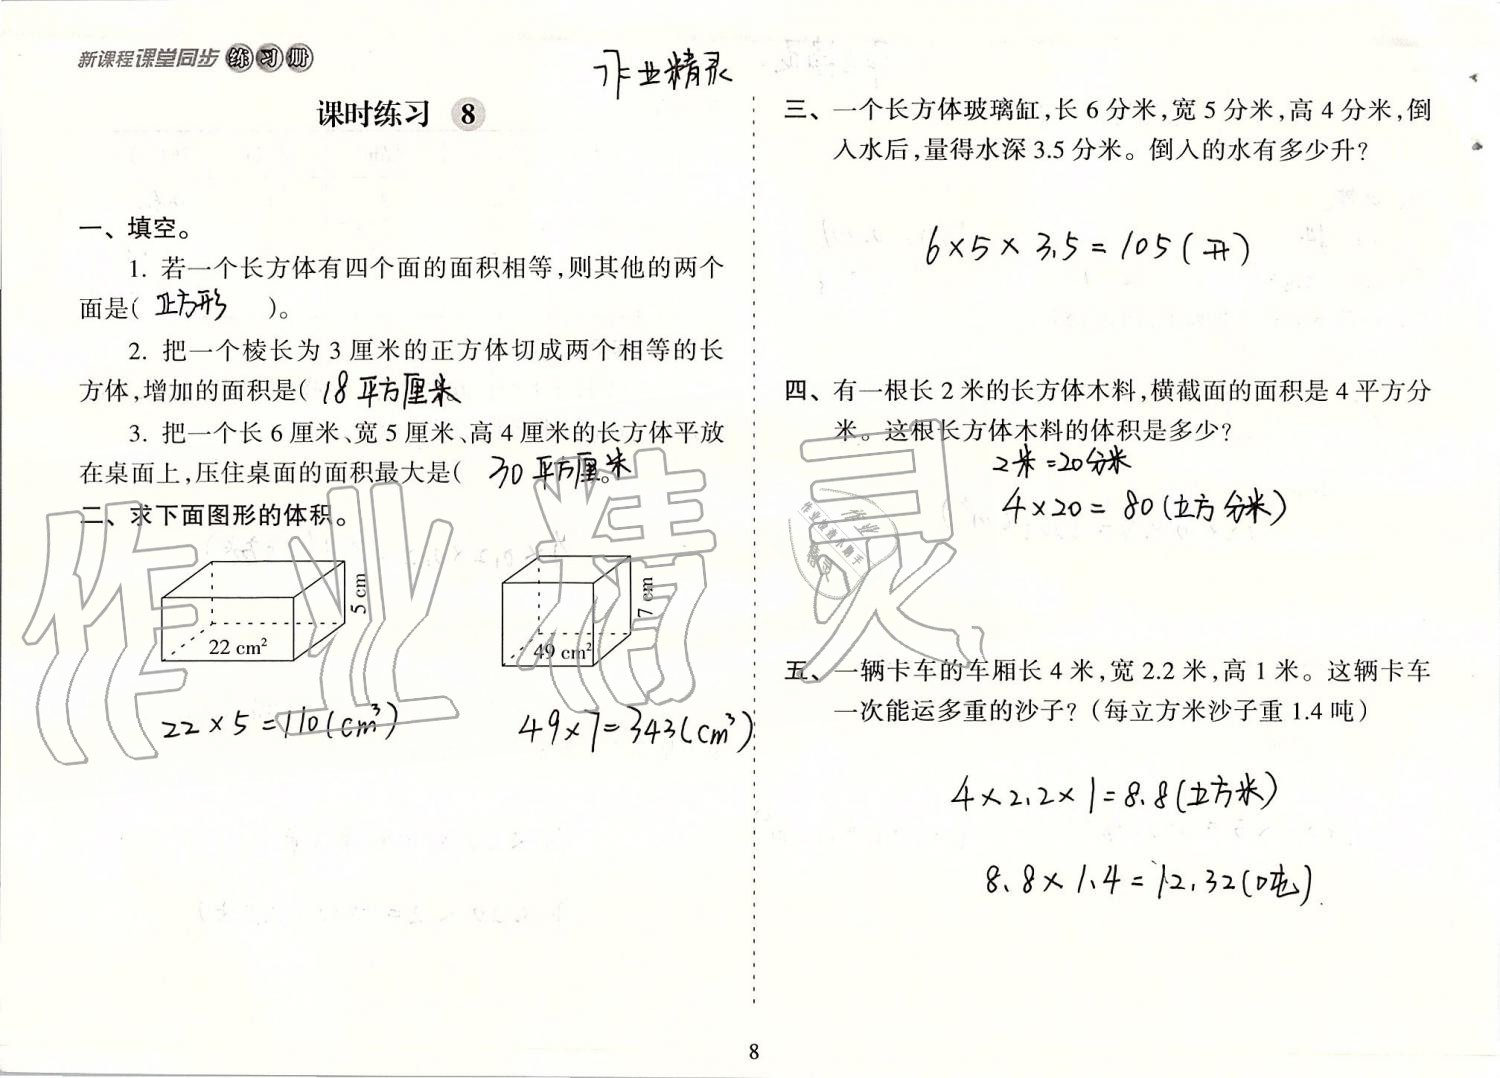 新课程课堂同步练习册
作业精灵
课时练习 8
一、填空。
1. 若一个长方体有四个面的面积相等,则其他的两个
面是( 正方形 )。
2. 把一个棱长为 3 厘米的正方体切成两个相等的长
方体,增加的面积是( 18平方厘米
3. 把一个长 6 厘米、宽 5 厘米、高 4 厘米的长方体平放
在桌面上,压住桌面的面积最大是( 30平方厘米
二、求下面图形的体积。
5 cm
22 cm²
7 cm
49 cm²
22×5=110(cm³)
49×7=343(cm³)
三、一个长方体玻璃缸,长 6 分米,宽 5 分米,高 4 分米,倒
入水后,量得水深 3.5 分米。倒入的水有多少升?
6×5×3.5=105(升)
四、有一根长 2 米的长方体木料,横截面的面积是 4 平方分
米。这根长方体木料的体积是多少?
2米=20分米
4×20=80(立方分米)
五、一辆卡车的车厢长 4 米,宽 2.2 米,高 1 米。这辆卡车
一次能运多重的沙子?(每立方米沙子重 1.4 吨)
4×2.2×1=8.8(立方米)
8.8×1.4=12.32(吨)
作业精灵
作业
作业检查小助手
精灵
8